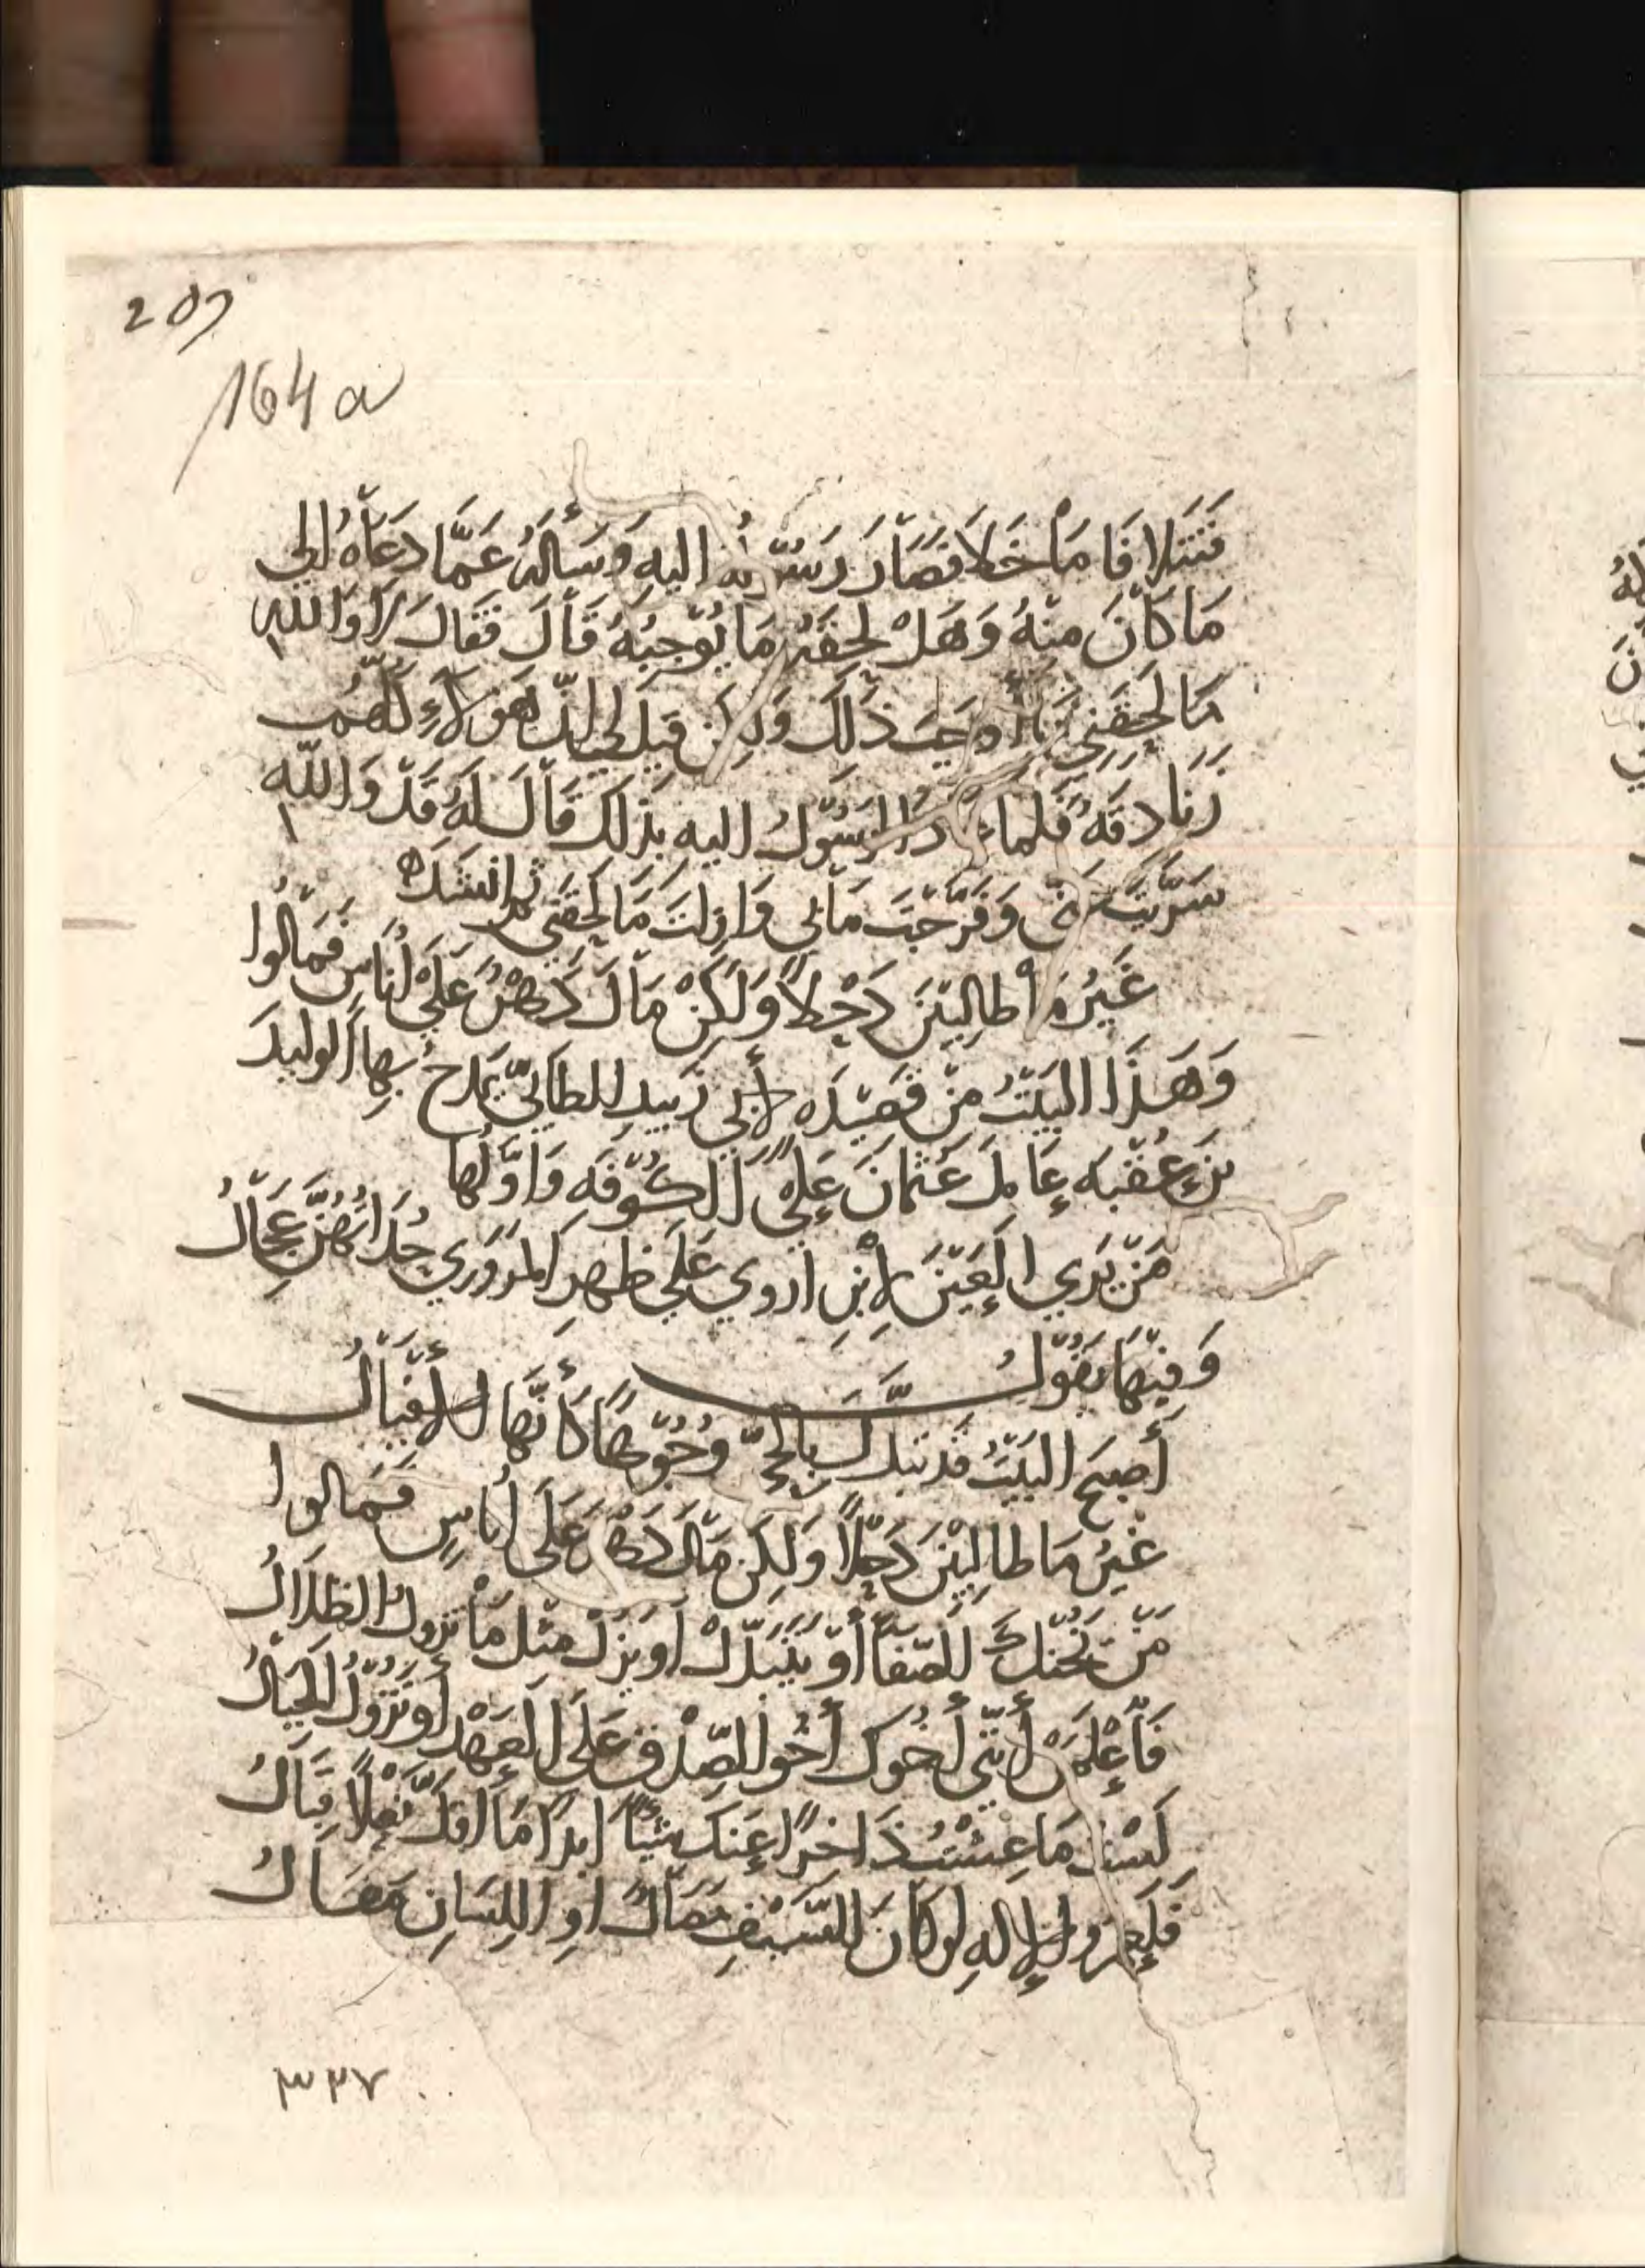 207
164 a
فَقُتِلا فَا مَاْ خَلَا فَصَارَ رَسُوْلُهُ اليهِ وَسَأَلَهُ عَمَّا دَعَاْهُ الى
مَا كَاْنَ مِنْهُ وَهَلْ لَحِقَهُ مَا يُوْجِبُهُ قَاْلَ فَقَالَ لَا وَاللهِ
مَا لَحِقَنِي مَا أَوْجَبَ ذَلِكَ وَلَكِن قِيلَ لِي انَّ هَؤلآءِ كُلّهُم
زَنَادِقَهُ فَلَمَّا عَادَ الرَسُوْلُ اليهِ بذلك قَاْلَ لَهُ قَدْ وَاللّهِ
سَرَّيْتَ عَنّي وَفَرَّجْتَ مَاْ بي وَازلتَ مَا لَحِقَني ثم انشَدَ
غَيْرُ مَاْ طالِبِيْنَ ذَحْلاً وَلَكِنْ مَاْلَ دَهْرٌ عَلَىْ أُنَاسٍ فَمَاْلُوا
وَهَذَا البَيْتُ مِنْ قَصِيْدَه لأَبي زُبَيدٍ الطائيِّ يَمْدَحُ بِهِا الوليدَ
بنَ عُقْبَه عَامِلَ عُثْمَانَ عَلَىْ الكُوْفَهِ وَاوَّلُها
مَنْ يَرَي العَيْنَ لِاْبْنِ اروي عَلَى ظهرِ المَرَوْرَي حُدَاتُهُنَّ عِجَاْلُ
وَفِيْهَا يَقُوْلُ
أَصبحَ البَيْتُ قد تبدّلَ بالحيِّ وُجُوْهاً كَأَنَّهَا الأَقْتَاْلُ
غَيْرُ مَا طالِبِيْنَ ذَحْلاً وَلَكِن مَاْلَ دَهْرٌ عَلَى أُنَاسٍ فَمَالُوا
مَنْ يَخُنْكَ الصَّفَاْ أَوْ يَتَبَدَّلْ أَو يَزُلْ مِثْلَ مَاْ تزولُ الظلَالُ
فَاْعْلَمَنْ أَنَّني أَخُوكَ أَخُو الصِّدْقِ عَلَى العَهْدِ أَو تَزُوْلَ الجِبَاْلُ
لَسْتُ مَا عِشْتُ ذَاخِرًا عَنكَ شَيْئًا ابدًا مَا اقلَّ نَعْلاً قِبَاْلُ
فَلَعمرُ الإِلهِ لو كَانَ للسَّيْفِ مَصَاْلٌ اوِ اللِسَانِ مَقَاْلُ
٣٢٧